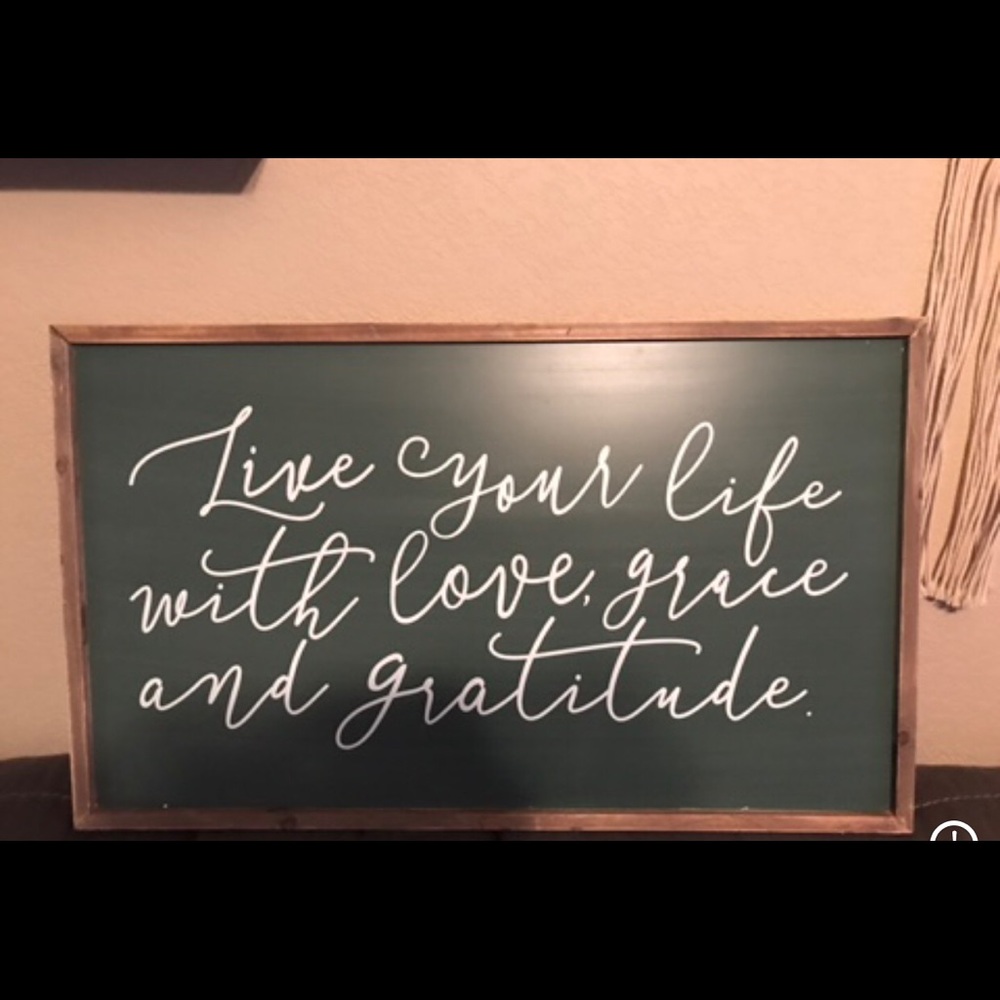 Live your life
with love, grace
and gratitude.